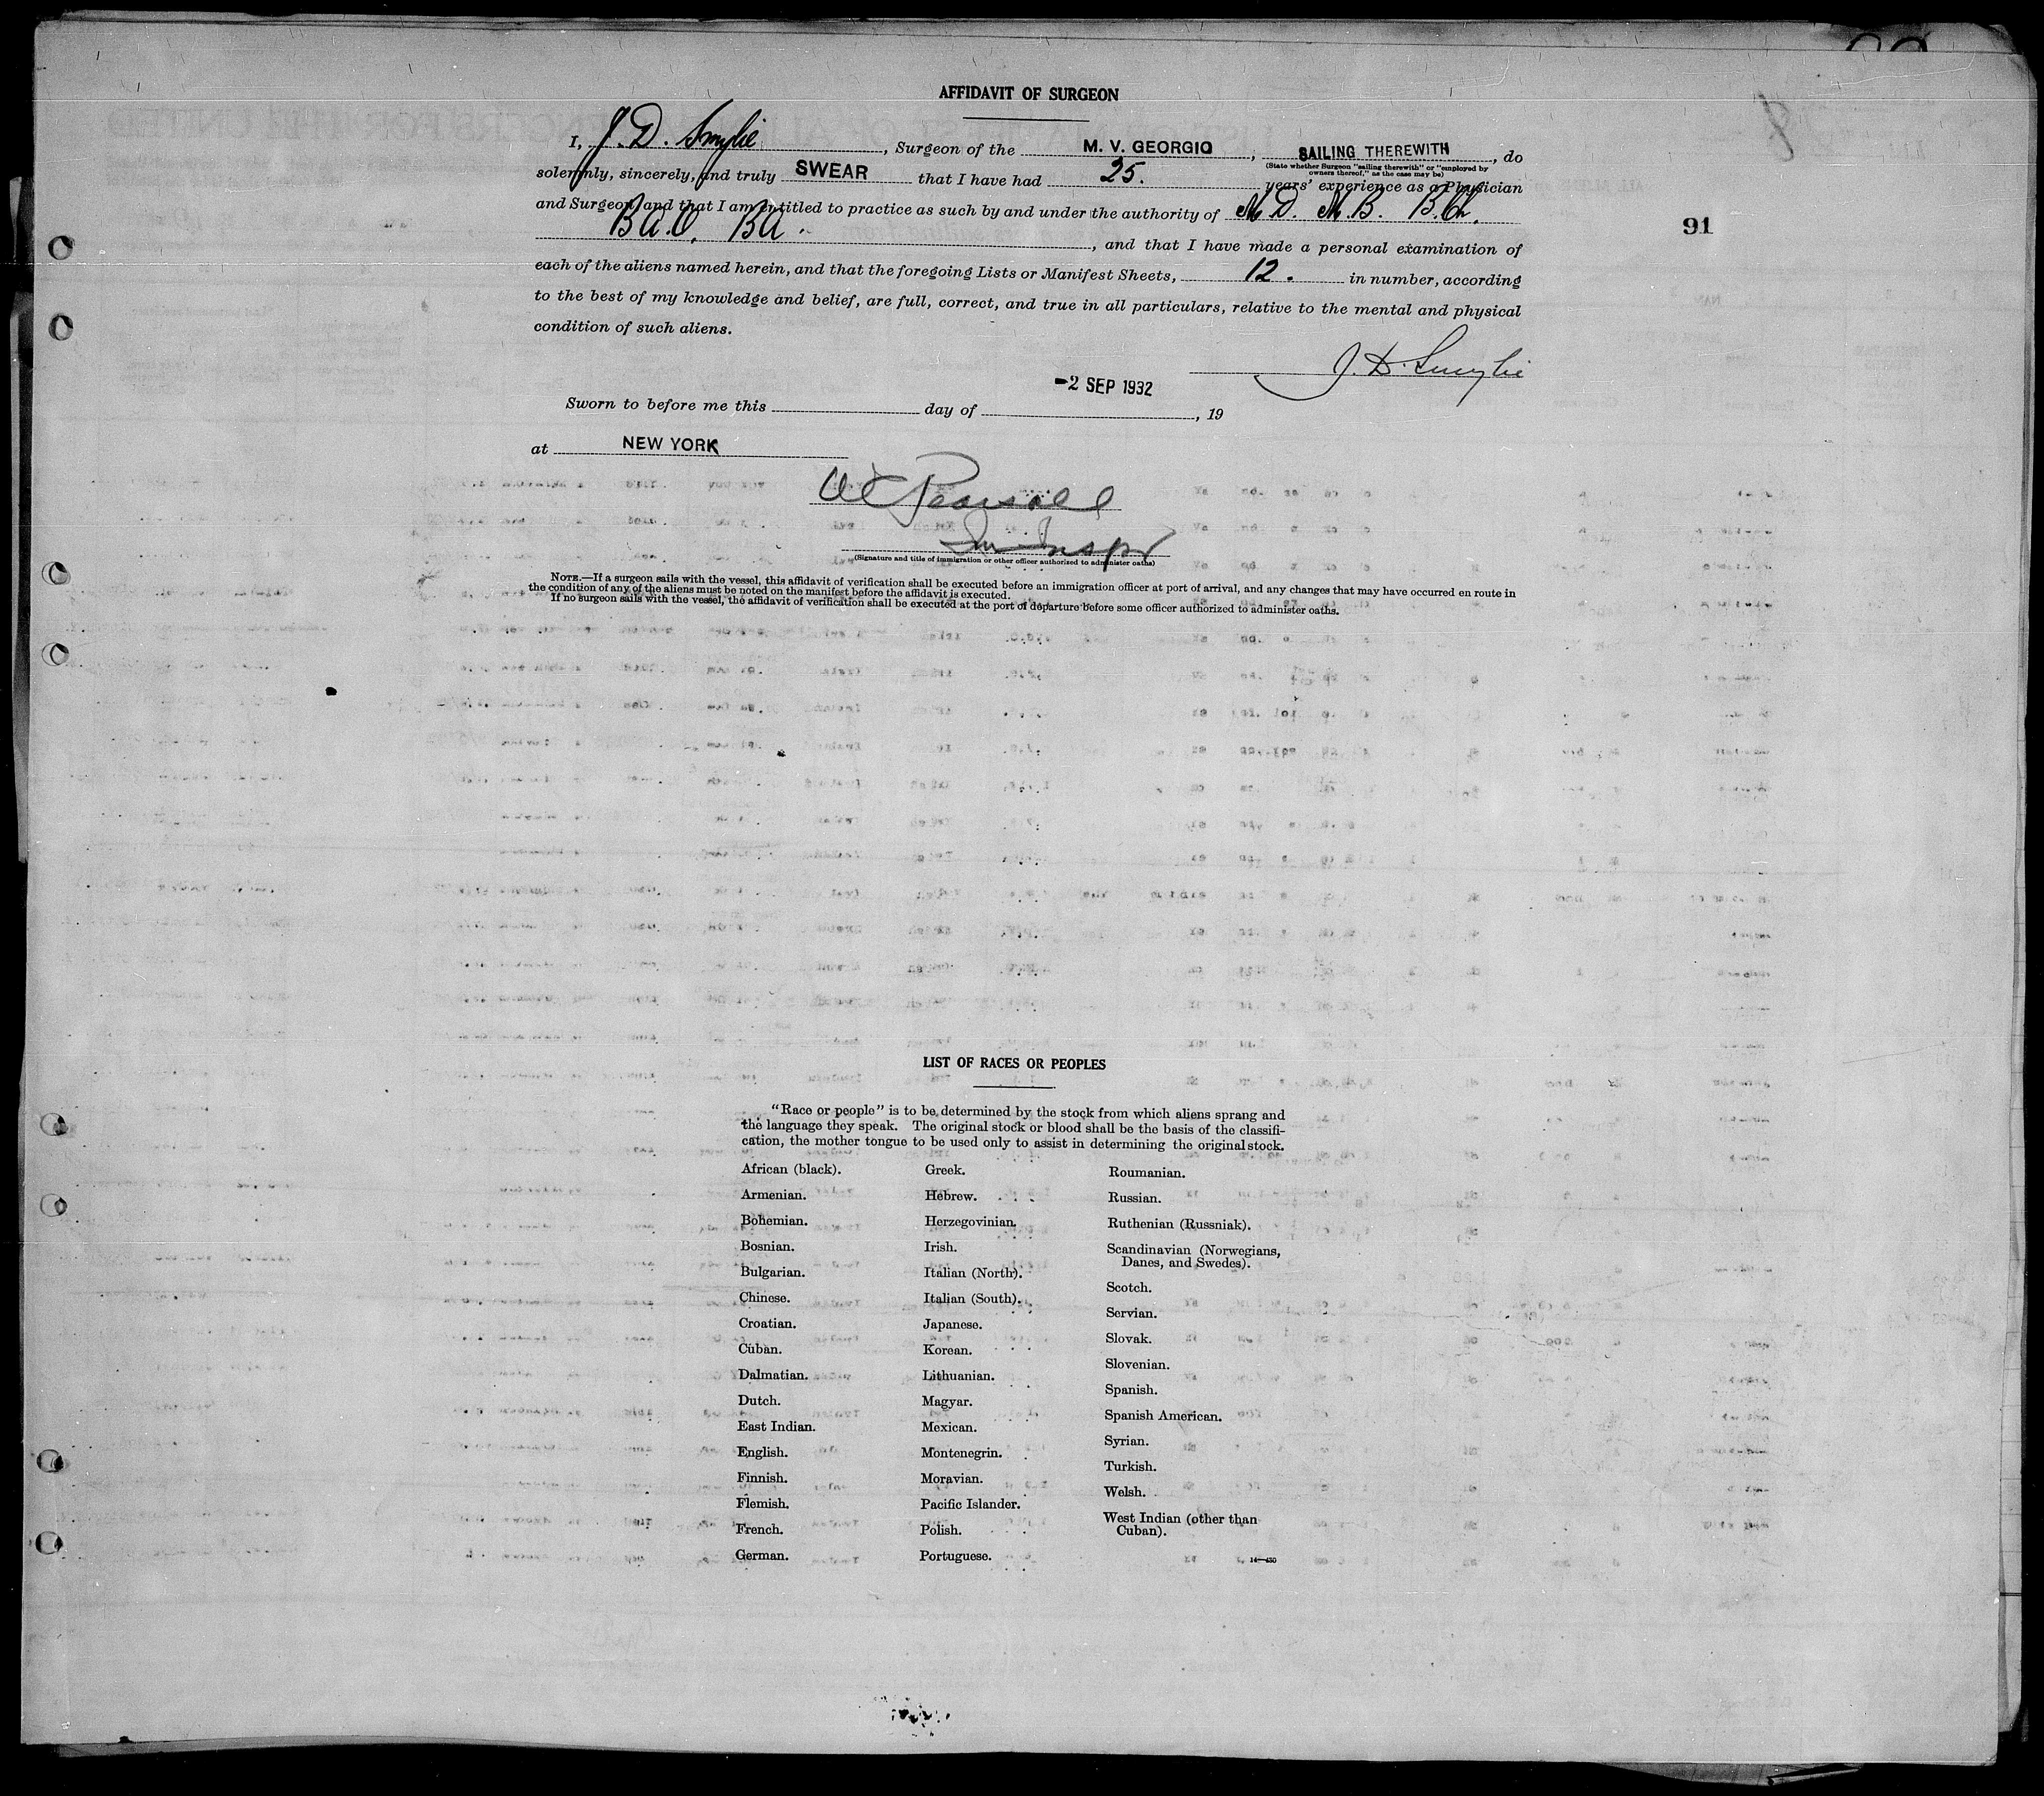 AFFIDAVIT OF SURGEON
8
I, J. D. Smylie, Surgeon of the M. V. GEORGIC, SAILING THEREWITH, do
(State whether Surgeon "sailing therewith" or "employed by
owners thereof," as the case may be)
solemnly, sincerely, and truly SWEAR that I have had 25. years' experience as a Physician
and Surgeon, and that I am entitled to practice as such by and under the authority of M.D. M.B. B.Ch.
91
B.A.O. BA., and that I have made a personal examination of
each of the aliens named herein, and that the foregoing Lists or Manifest Sheets, 12. in number, according
to the best of my knowledge and belief, are full, correct, and true in all particulars, relative to the mental and physical
condition of such aliens.
J. D. Smylie
-2 SEP 1932
Sworn to before me this day of , 19
at NEW YORK
Pearsall
Im Inspr
(Signature and title of immigration or other officer authorized to administer oaths)
NOTE.—If a surgeon sails with the vessel, this affidavit of verification shall be executed before an immigration officer at port of arrival, and any changes that may have occurred en route in
the condition of any of the aliens must be noted on the manifest before the affidavit is executed.
If no surgeon sails with the vessel, the affidavit of verification shall be executed at the port of departure before some officer authorized to administer oaths.
LIST OF RACES OR PEOPLES
"Race or people" is to be determined by the stock from which aliens sprang and
the language they speak. The original stock or blood shall be the basis of the classifi-
cation, the mother tongue to be used only to assist in determining the original stock.
African (black).
Armenian.
Bohemian.
Bosnian.
Bulgarian.
Chinese.
Croatian.
Cuban.
Dalmatian.
Dutch.
East Indian.
English.
Finnish.
Flemish.
French.
German.
Greek.
Hebrew.
Herzegovinian.
Irish.
Italian (North).
Italian (South).
Japanese.
Korean.
Lithuanian.
Magyar.
Mexican.
Montenegrin.
Moravian.
Pacific Islander.
Polish.
Portuguese.
Roumanian.
Russian.
Ruthenian (Russniak).
Scandinavian (Norwegians,
Danes, and Swedes).
Scotch.
Servian.
Slovak.
Slovenian.
Spanish.
Spanish American.
Syrian.
Turkish.
Welsh.
West Indian (other than
Cuban).
14—430